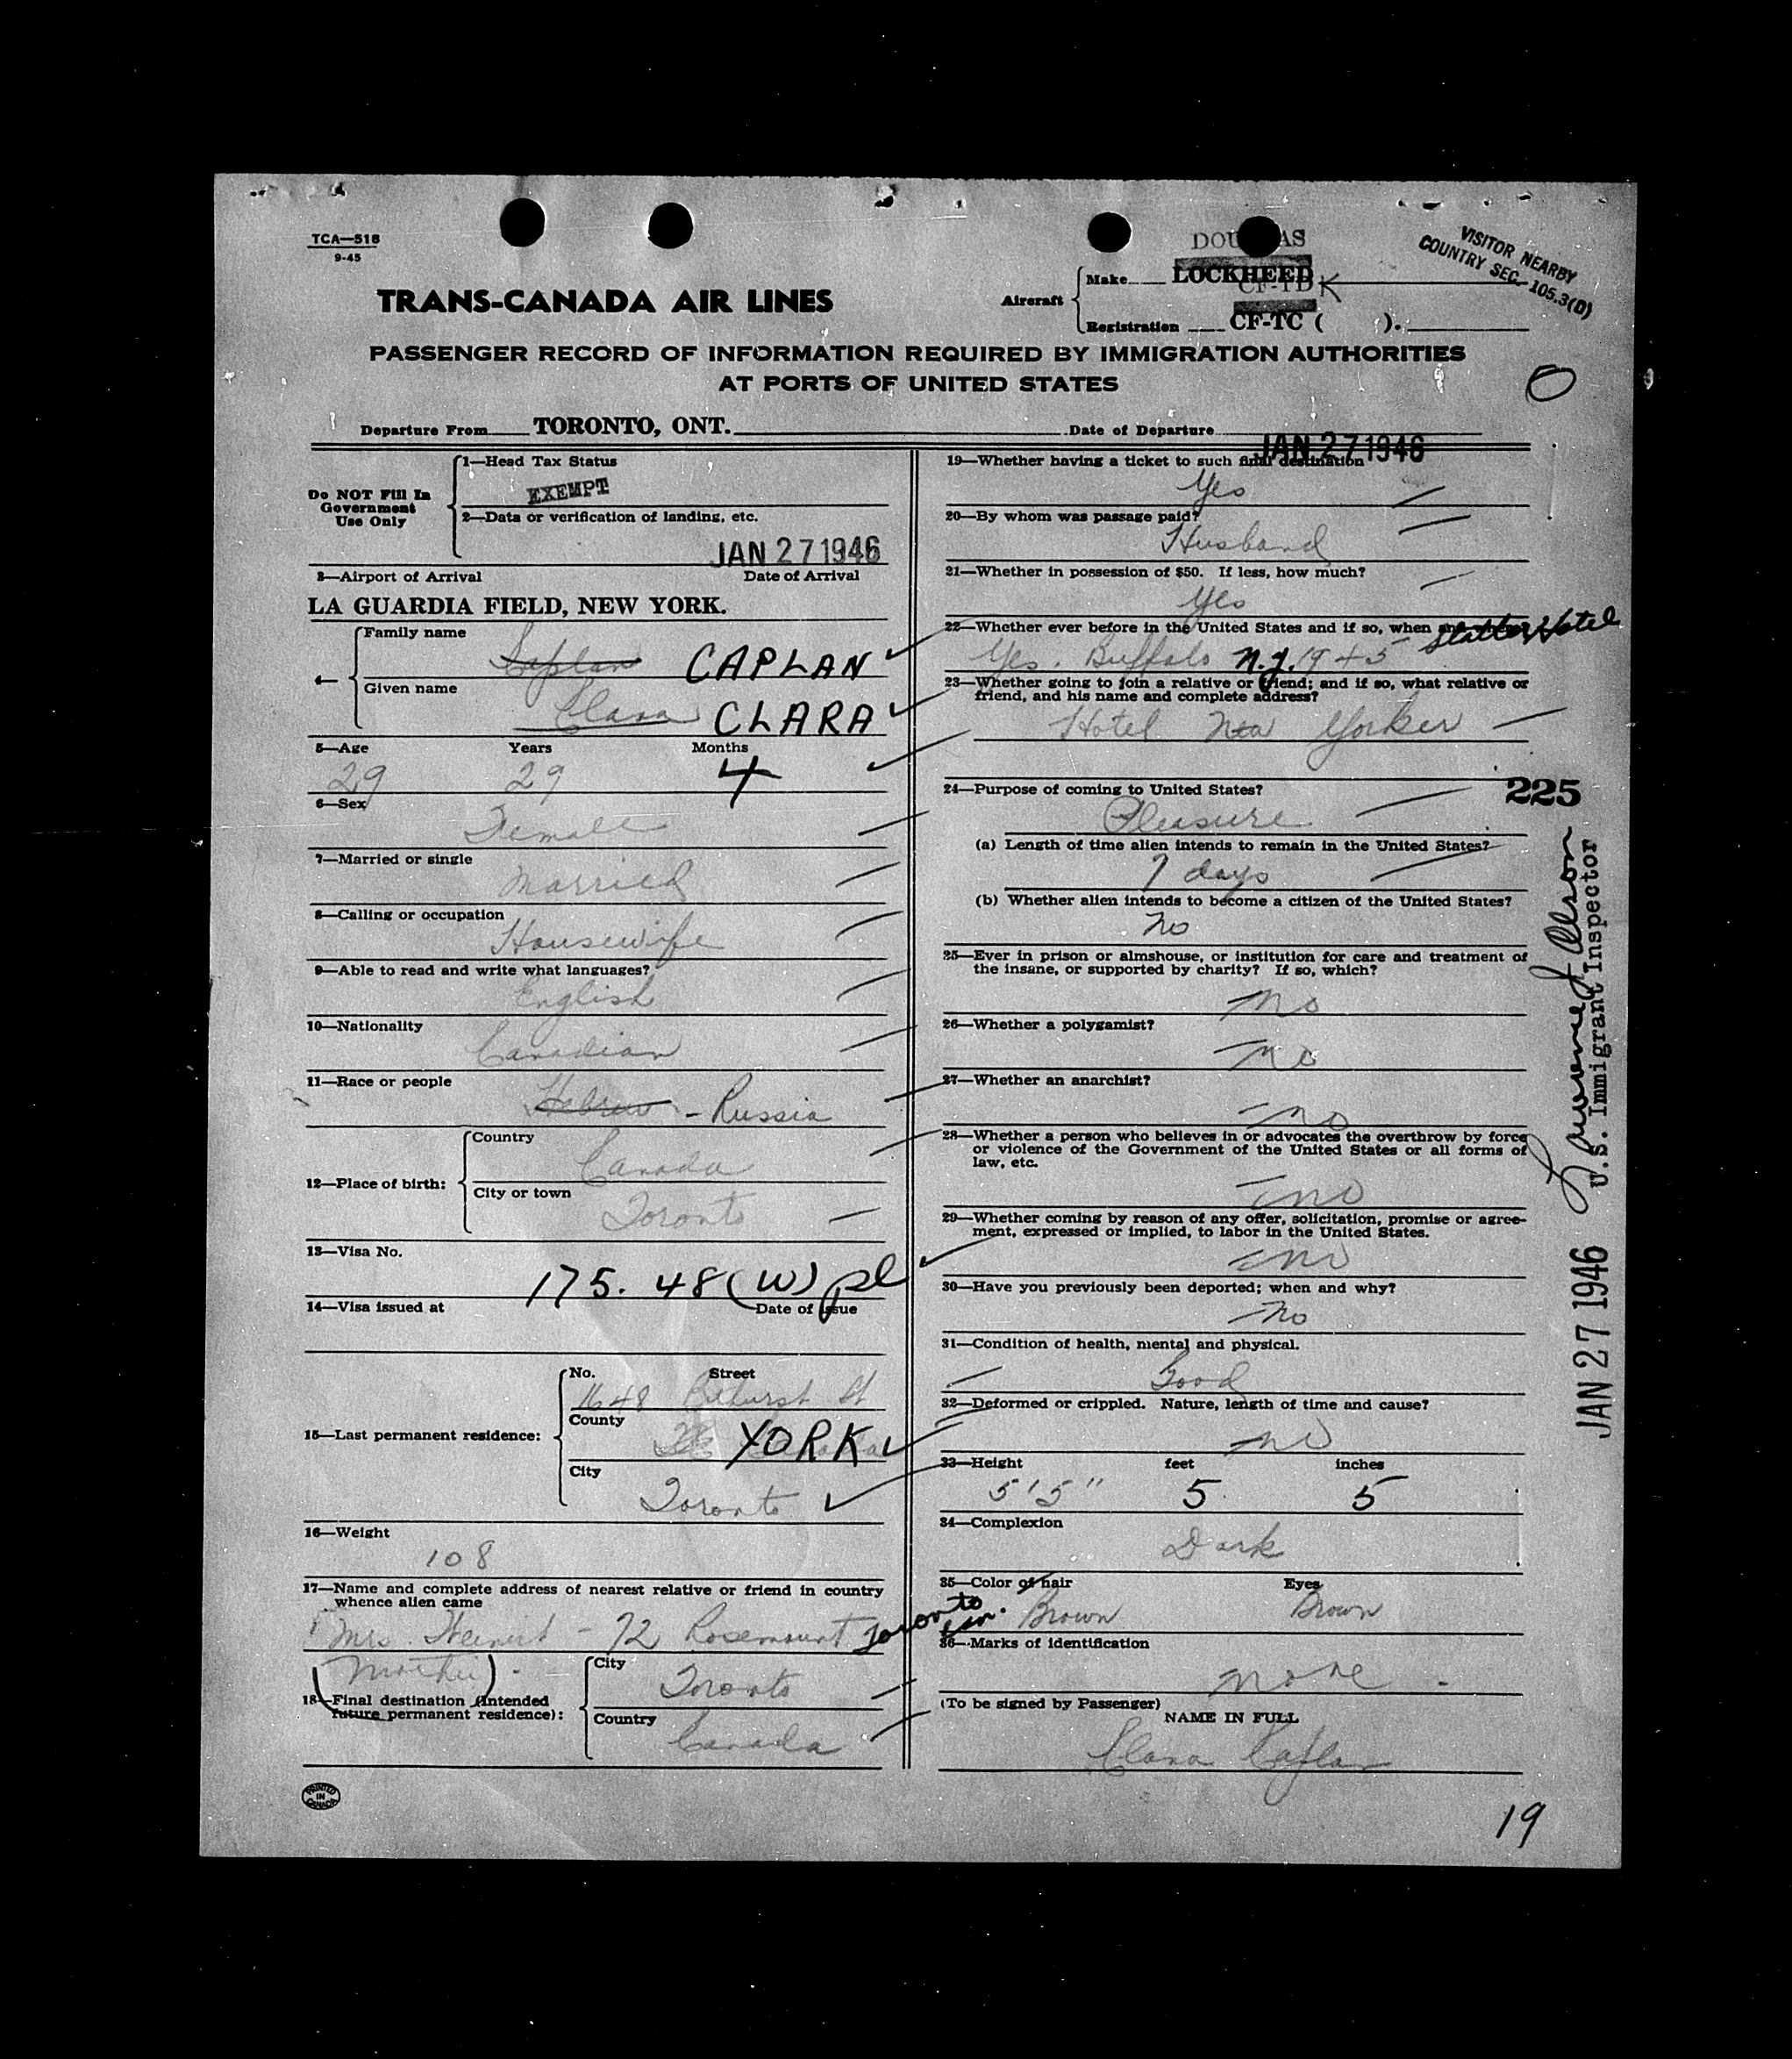 TCA—518
9-45
DOUGLAS
VISITOR NEARBY
COUNTRY SEC. 105.3(D)
Aircraft
Make LOCKHEED
CF-TDK
Registration CF-TC ( ).
TRANS-CANADA AIR LINES
PASSENGER RECORD OF INFORMATION REQUIRED BY IMMIGRATION AUTHORITIES
AT PORTS OF UNITED STATES
O
Departure From TORONTO, ONT. Date of Departure JAN 27 1946
Do NOT Fill In
Government
Use Only
1—Head Tax Status
EXEMPT
2—Data or verification of landing, etc.
JAN 27 1946
3—Airport of Arrival Date of Arrival
LA GUARDIA FIELD, NEW YORK.
4—
Family name
Caplan CAPLAN
Given name
Clara CLARA
5—Age Years Months
29 29 4
6—Sex
Female
7—Married or single
Married
8—Calling or occupation
Housewife
9—Able to read and write what languages?
English
10—Nationality
Canadian
11—Race or people
Hebrew - Russia
12—Place of birth:
Country
Canada
City or town
Toronto
13—Visa No.
175. 48 (W) pl
14—Visa issued at Date of issue
15—Last permanent residence:
No. Street
1648 Bathurst St
County
YORK
City
Toronto
16—Weight
108
17—Name and complete address of nearest relative or friend in country
whence alien came
Mrs. - 72 Rosemount Toronto
Can.
(Mother).
18—Final destination (Intended
future permanent residence):
City
Toronto
Country
Canada
PRINTED
IN
CANADA
19—Whether having a ticket to such final destination
Yes
20—By whom was passage paid?
Husband
21—Whether in possession of $50. If less, how much?
Yes
22—Whether ever before in the United States and if so, when and
Statler Hotel
Yes. Buffalo N.Y. 1945
23—Whether going to join a relative or friend; and if so, what relative or
friend, and his name and complete address?
Hotel New Yorker
24—Purpose of coming to United States?
Pleasure
(a) Length of time alien intends to remain in the United States?
7 days
(b) Whether alien intends to become a citizen of the United States?
No
25—Ever in prison or almshouse, or institution for care and treatment of
the insane, or supported by charity? If so, which?
No
26—Whether a polygamist?
No
27—Whether an anarchist?
No
28—Whether a person who believes in or advocates the overthrow by force
or violence of the Government of the United States or all forms of
law, etc.
No
29—Whether coming by reason of any offer, solicitation, promise or agree-
ment, expressed or implied, to labor in the United States.
No
30—Have you previously been deported; when and why?
No
31—Condition of health, mental and physical.
Good
32—Deformed or crippled. Nature, length of time and cause?
No
33—Height feet inches
5'5" 5 5
34—Complexion
Dark
35—Color of hair Eyes
Brown Brown
36—Marks of identification
None
(To be signed by Passenger)
NAME IN FULL
Clara Caplan
19
225
Olson
U.S. Immigrant Inspector
JAN 27 1946